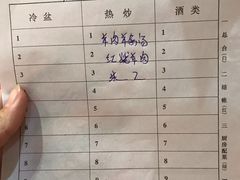 冷盆 热炒 酒类
1 1 羊肉羊杂汤 1
2 2 红烧羊肉 2
3 3 米 2 3
4 4 4
5 5 5
6 6
7 7
8 8
9
一 总台(白) 二 结帐(红) 三 厨房配菜(